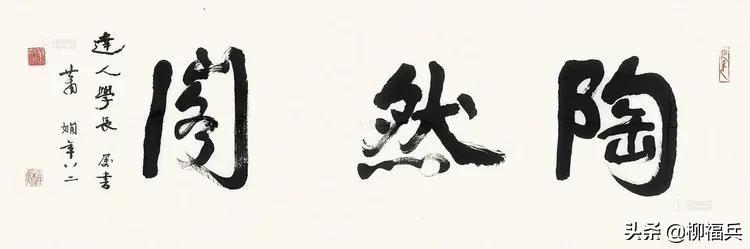 陶然閣
達人學長屬書
蕭嫻年八二
头条 @柳福兵